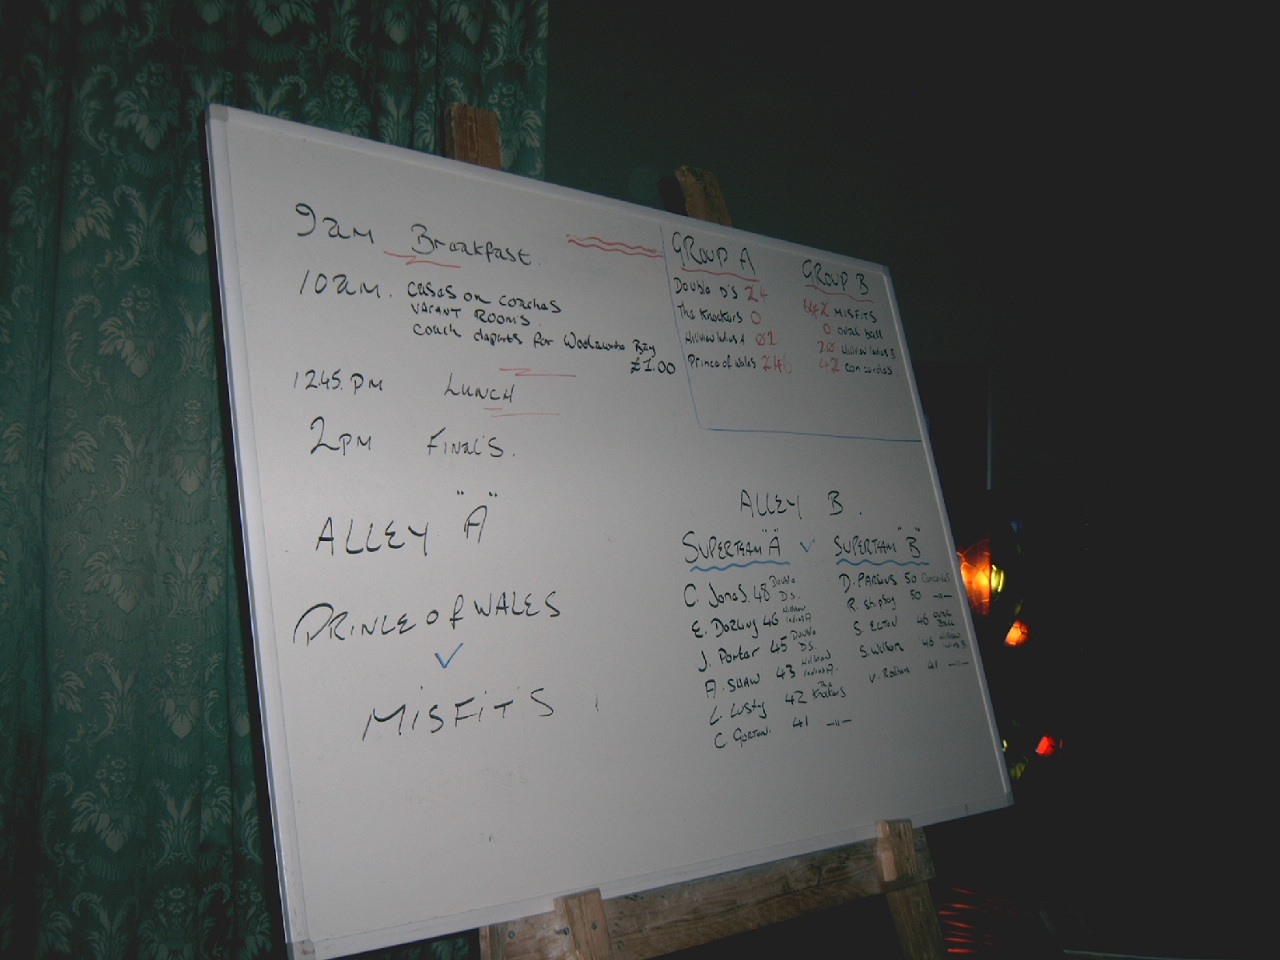 9am Breakfast
10am. cases on coaches
VACANT ROOMS
coach departs for Woolacombe Bay
£1.00
12.45.PM LUNCH
2PM FINAL'S.
ALLEY "A"
PRINCE of WALES
V
MiSFiT'S
GROUP A
Double D'S 24
The Knockers 0
Hillview Ladies A 02
Prince of Wales 246
GROUP B
MISFITS
0 oval ball
20 Hillview Ladies B
42 Concordes
ALLEY B.
SUPERTEAM "A" V SUPERTEAM "B"
C. Jones. 48 Double D's.
E. Dorling 46 Hillview Ladies A
J. Porter 45 Double D's.
A. SHAW 43 Hillview Ladies A.
L. Lusty 42 The Knockers
C Gorton. 41 -"-
D. PARSONS 50 Concordes
R. Shipley 50 -"-
S. ELTON 46 Oval Ball
S. Wilson 46 Hillview Ladies B
V. 41 -"-